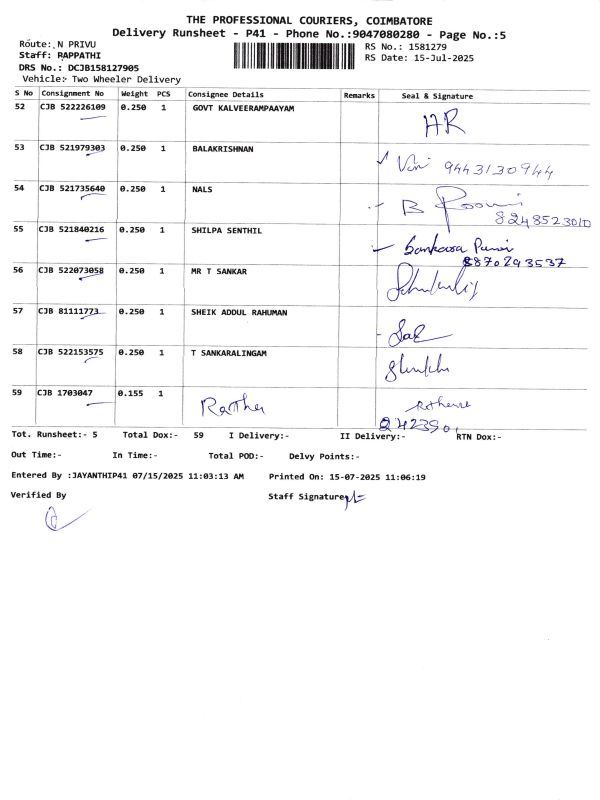 THE PROFESSIONAL COURIERS, COIMBATORE
Delivery Runsheet - P41 - Phone No.:9047080280 - Page No.:5
Route: N PRIVU
RS No.: 1581279
Staff: PAPPATHI
RS Date: 15-Jul-2025
DRS No.: DCJB158127905
Vehicle:- Two Wheeler Delivery
S No Consignment No Weight PCS Consignee Details Remarks Seal & Signature
52 CJB 522226109 0.250 1 GOVT KALVEERAMPAAYAM HR
53 CJB 521979303 0.250 1 BALAKRISHNAN 9443130944
54 CJB 521735640 0.250 1 NALS B
8248523010
55 CJB 521840216 0.250 1 SHILPA SENTHIL
8870293537
56 CJB 522073058 0.250 1 MR T SANKAR
57 CJB 81111773 0.250 1 SHEIK ADDUL RAHUMAN
58 CJB 522153575 0.250 1 T SANKARALINGAM
59 CJB 1703047 0.155 1
Tot. Runsheet:- 5 Total Dox:- 59 I Delivery:- II Delivery:- RTN Dox:-
Out Time:- In Time:- Total POD:- Delvy Points:-
Entered By :JAYANTHIP41 07/15/2025 11:03:13 AM Printed On: 15-07-2025 11:06:19
Verified By Staff Signature